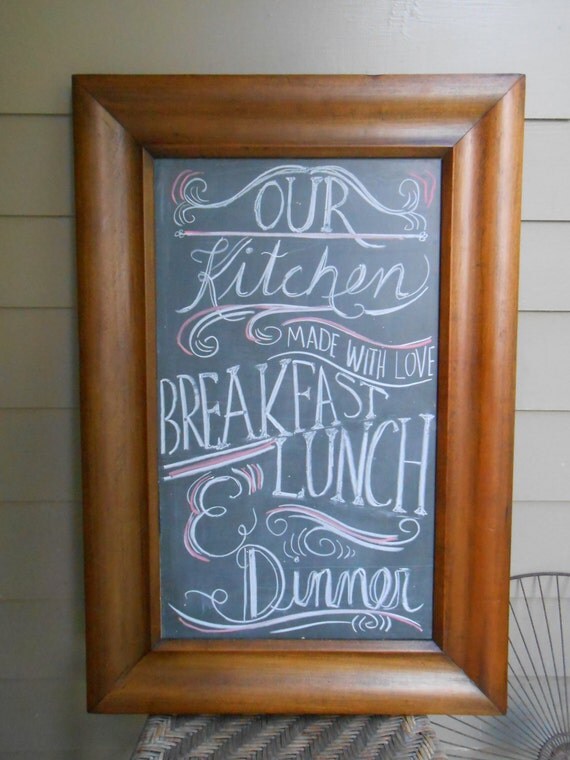 OUR
Kitchen
MADE WITH LOVE
BREAKFAST
LUNCH
&
Dinner